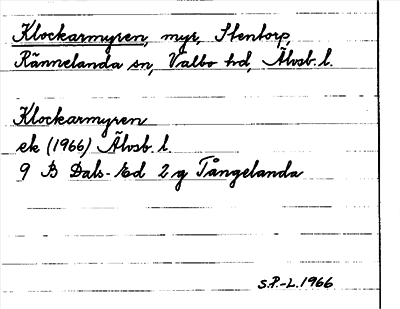 Klockarmyren, myr, Stentorp,
Rännelanda sn, Valbo hd, Älvsb. l.
Klockarmyren
ek (1966) Älvsb. l.
9 B Dals-Ed 2 g Tångelanda
S.P.-L. 1966